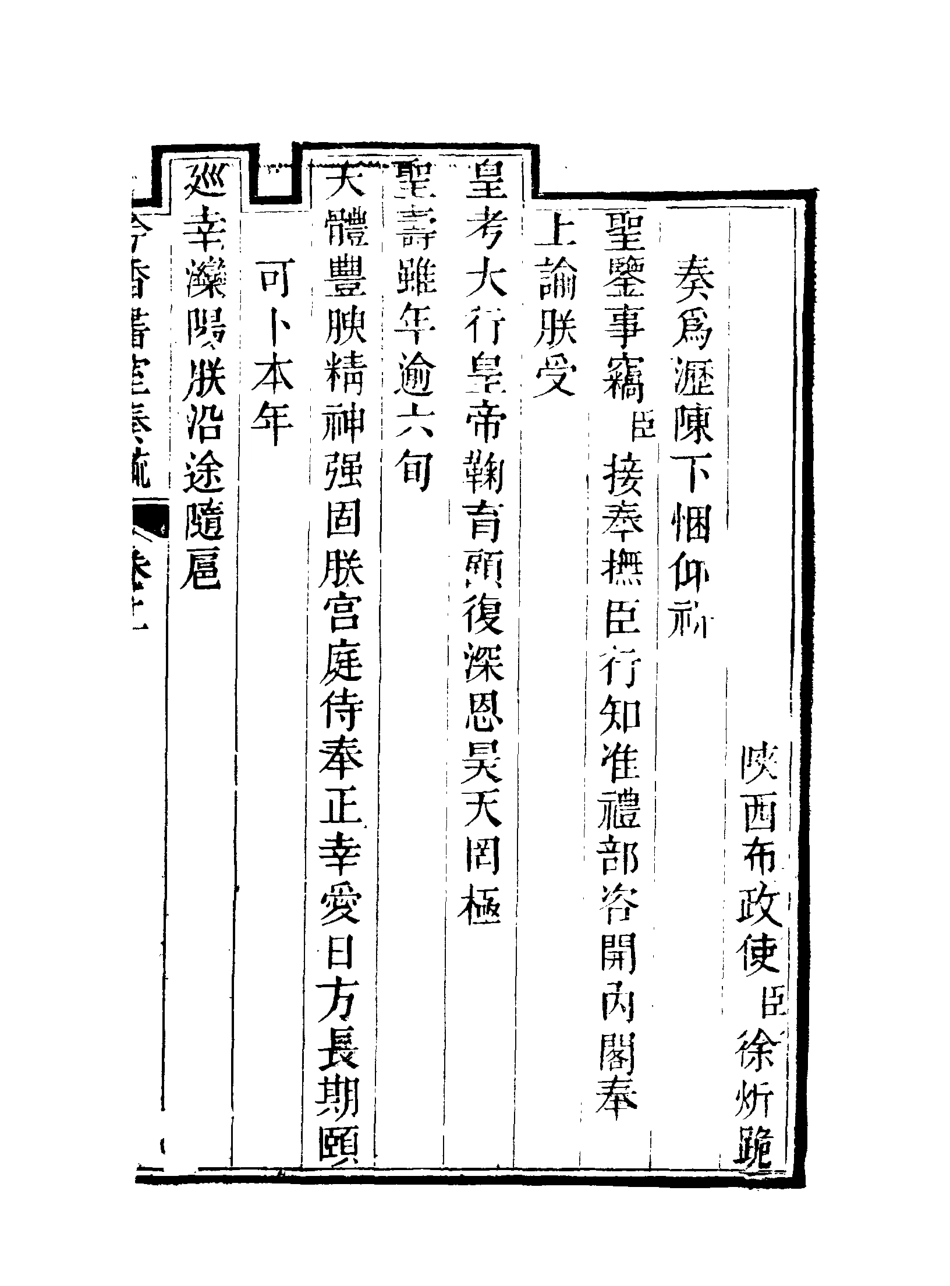 陝西布政使臣徐炘跪
奏爲瀝陳下悃仰祈
聖鑒事竊臣接奉撫臣行知准禮部咨開內閣奉
上諭朕受
皇考大行皇帝鞠育顧復深恩昊天罔極
聖壽雖年逾六旬
天體豐腴精神强固朕宫庭侍奉正幸愛日方長期頤
可卜本年
廵幸灤陽朕沿途隨扈
吟香書室奏疏 卷二